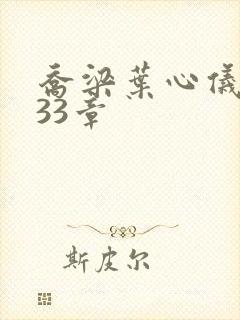 乔梁葉心儀
33章
斯皮尔